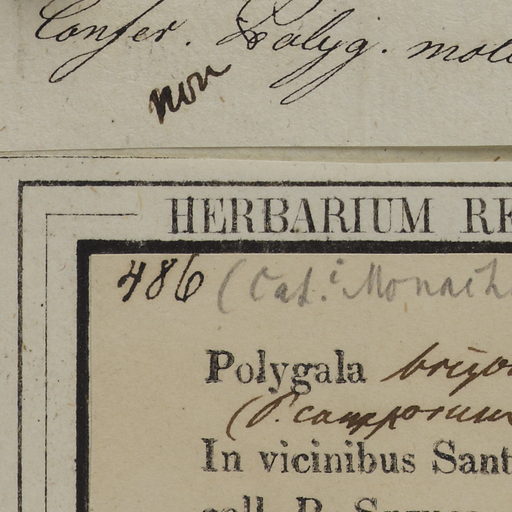 Confer. Polyg. mol
non
HERBARIUM RE
486 (Cat. Monach
Polygala brizo
(P. camporum
In vicinibus Sant
coll. R. Spruce